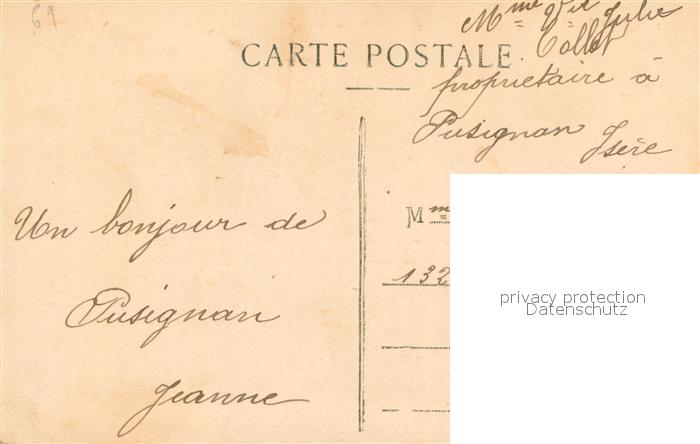 69
Mme Vve Julie
Collet
CARTE POSTALE
propriétaire à
Pusignan
Isère
Un bonjour de
Pusignan
Jeanne
Mme
132
privacy protection
Datenschutz